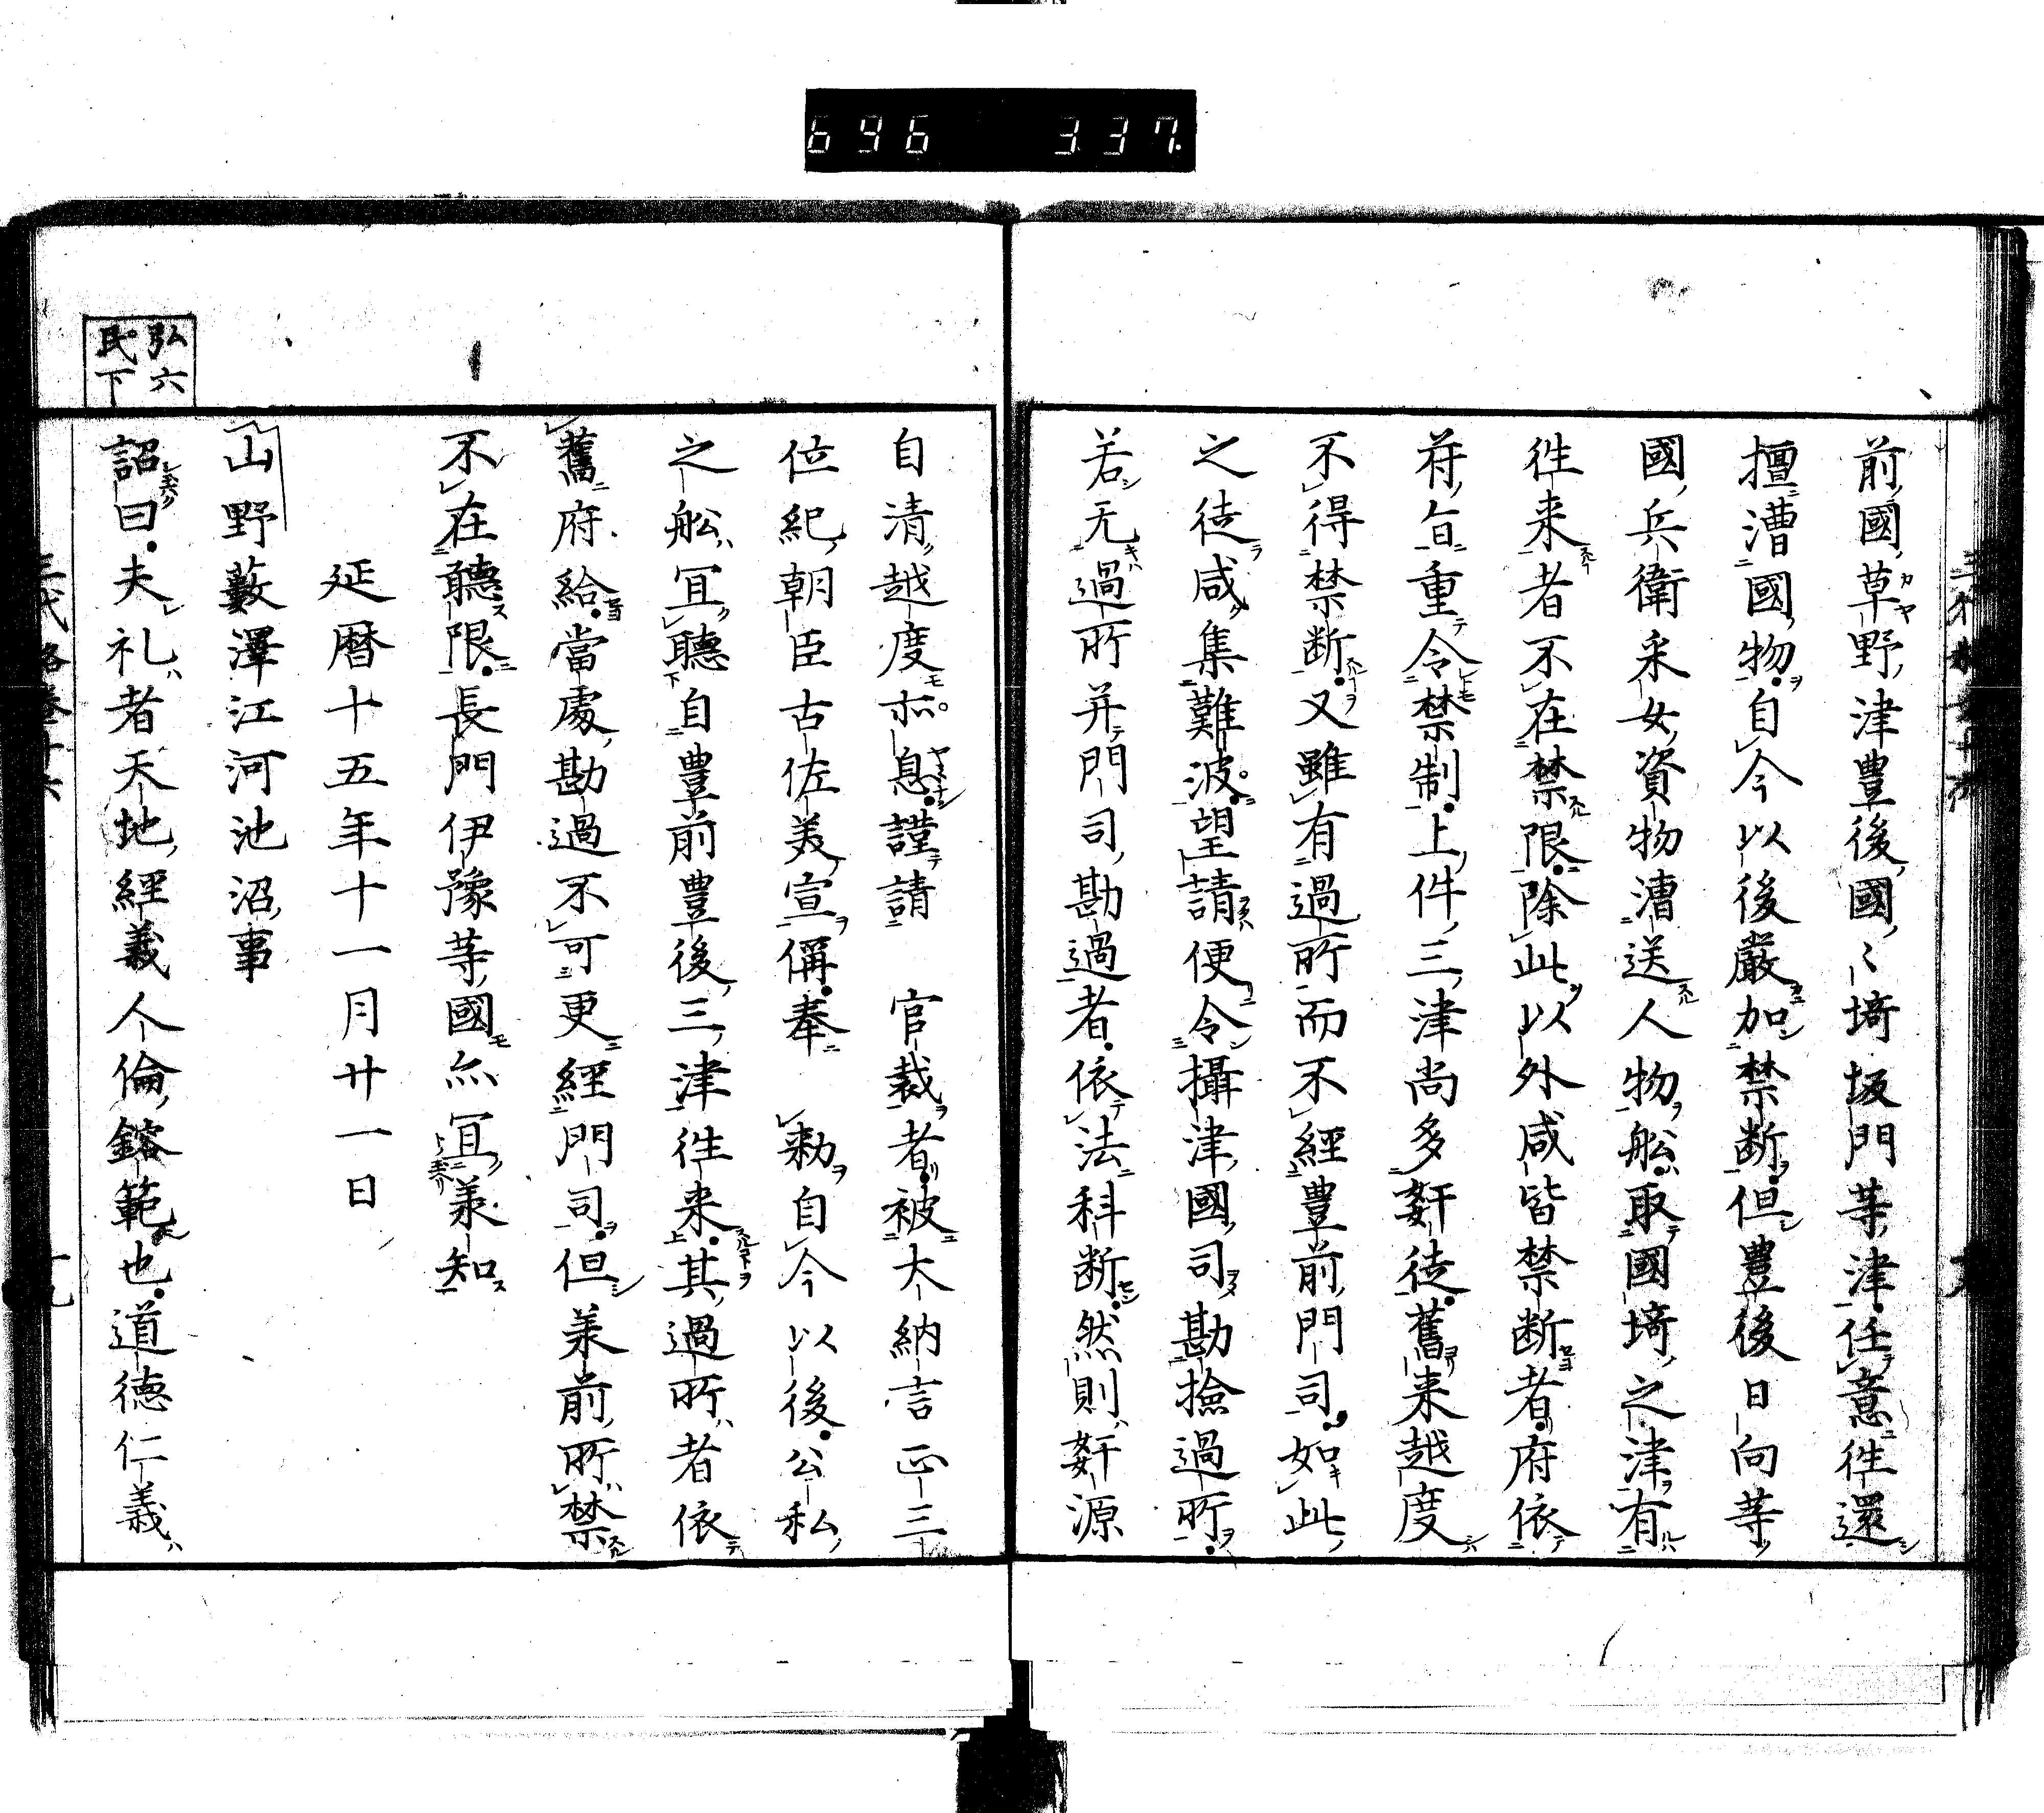 696 337
前國草野津豊後國〻埼坂門䒭津任意徃還
擅漕國物自今以後嚴加禁断但豊後日向䒭
國兵衛采女資物漕送人物舩取國埼之津有
徃来者不在禁限除此以外咸皆禁断者府依
苻旨重令禁制上件三津尚多姧徒舊来越度
不得禁断又雖有過所而不經豊前門司如此
之徒咸集難波望請便令攝津國司勘撿過所
若无過所并門司勘過者依法科断然則姧源
自清越度亦息謹請　官裁者被大納言正三
位紀朝臣古佐美宣偁奉　勅自今以後公私
之舩冝聽自豊前豊後三津徃来其過所者依
舊府給當處勘過不可更經門司但羕前所禁
不在聽限長門伊豫䒭國亦冝羕知
延暦十五年十一月廿一日
山野藪澤江河池沼事
弘六
民下
詔曰夫礼者天地經義人倫鎔範也道德仁義